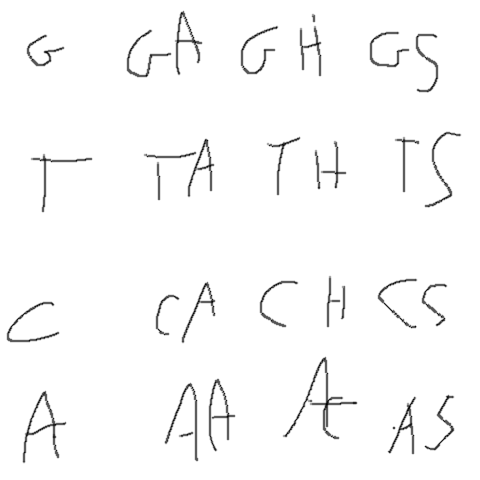 G GA GH GS
T TA TH TS
C CA CH CS
A AA AS